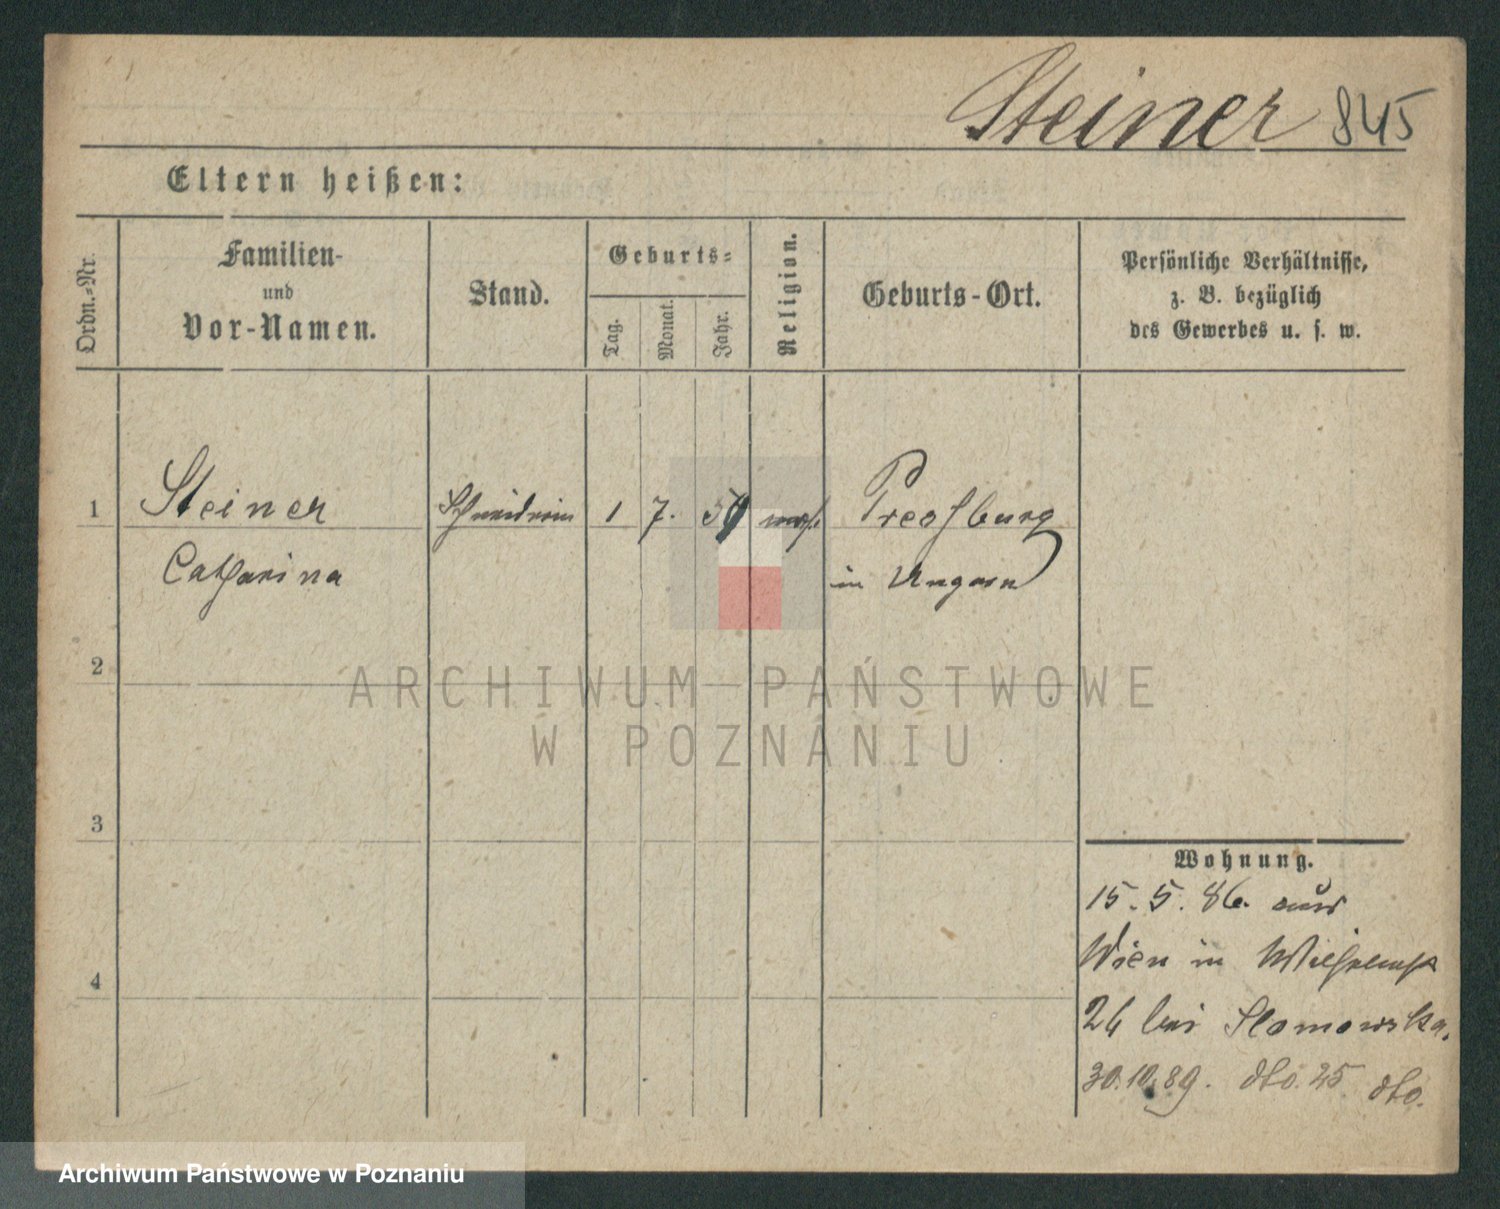 Steiner 845
Eltern heißen:
Ordn.-Nr.
Familien-
und
Vor-Namen.
Stand.
Geburts-
Tag.
Monat.
Jahr.
Religion.
Geburts-Ort.
Persönliche Verhältnisse,
z. B. bezüglich
des Gewerbes u. s. w.
1 Steiner Schneiderin 1 7. Pressburg
Catharina in Ungarn
2
ARCHIWUM PAŃSTWOWE
W POZNANIU
3
Wohnung.
15. 5. 86. aus
Wien in Wilhelmst
24 bei Slomowska.
4
30.10.89. dto. 25 dto.
Archiwum Państwowe w Poznaniu